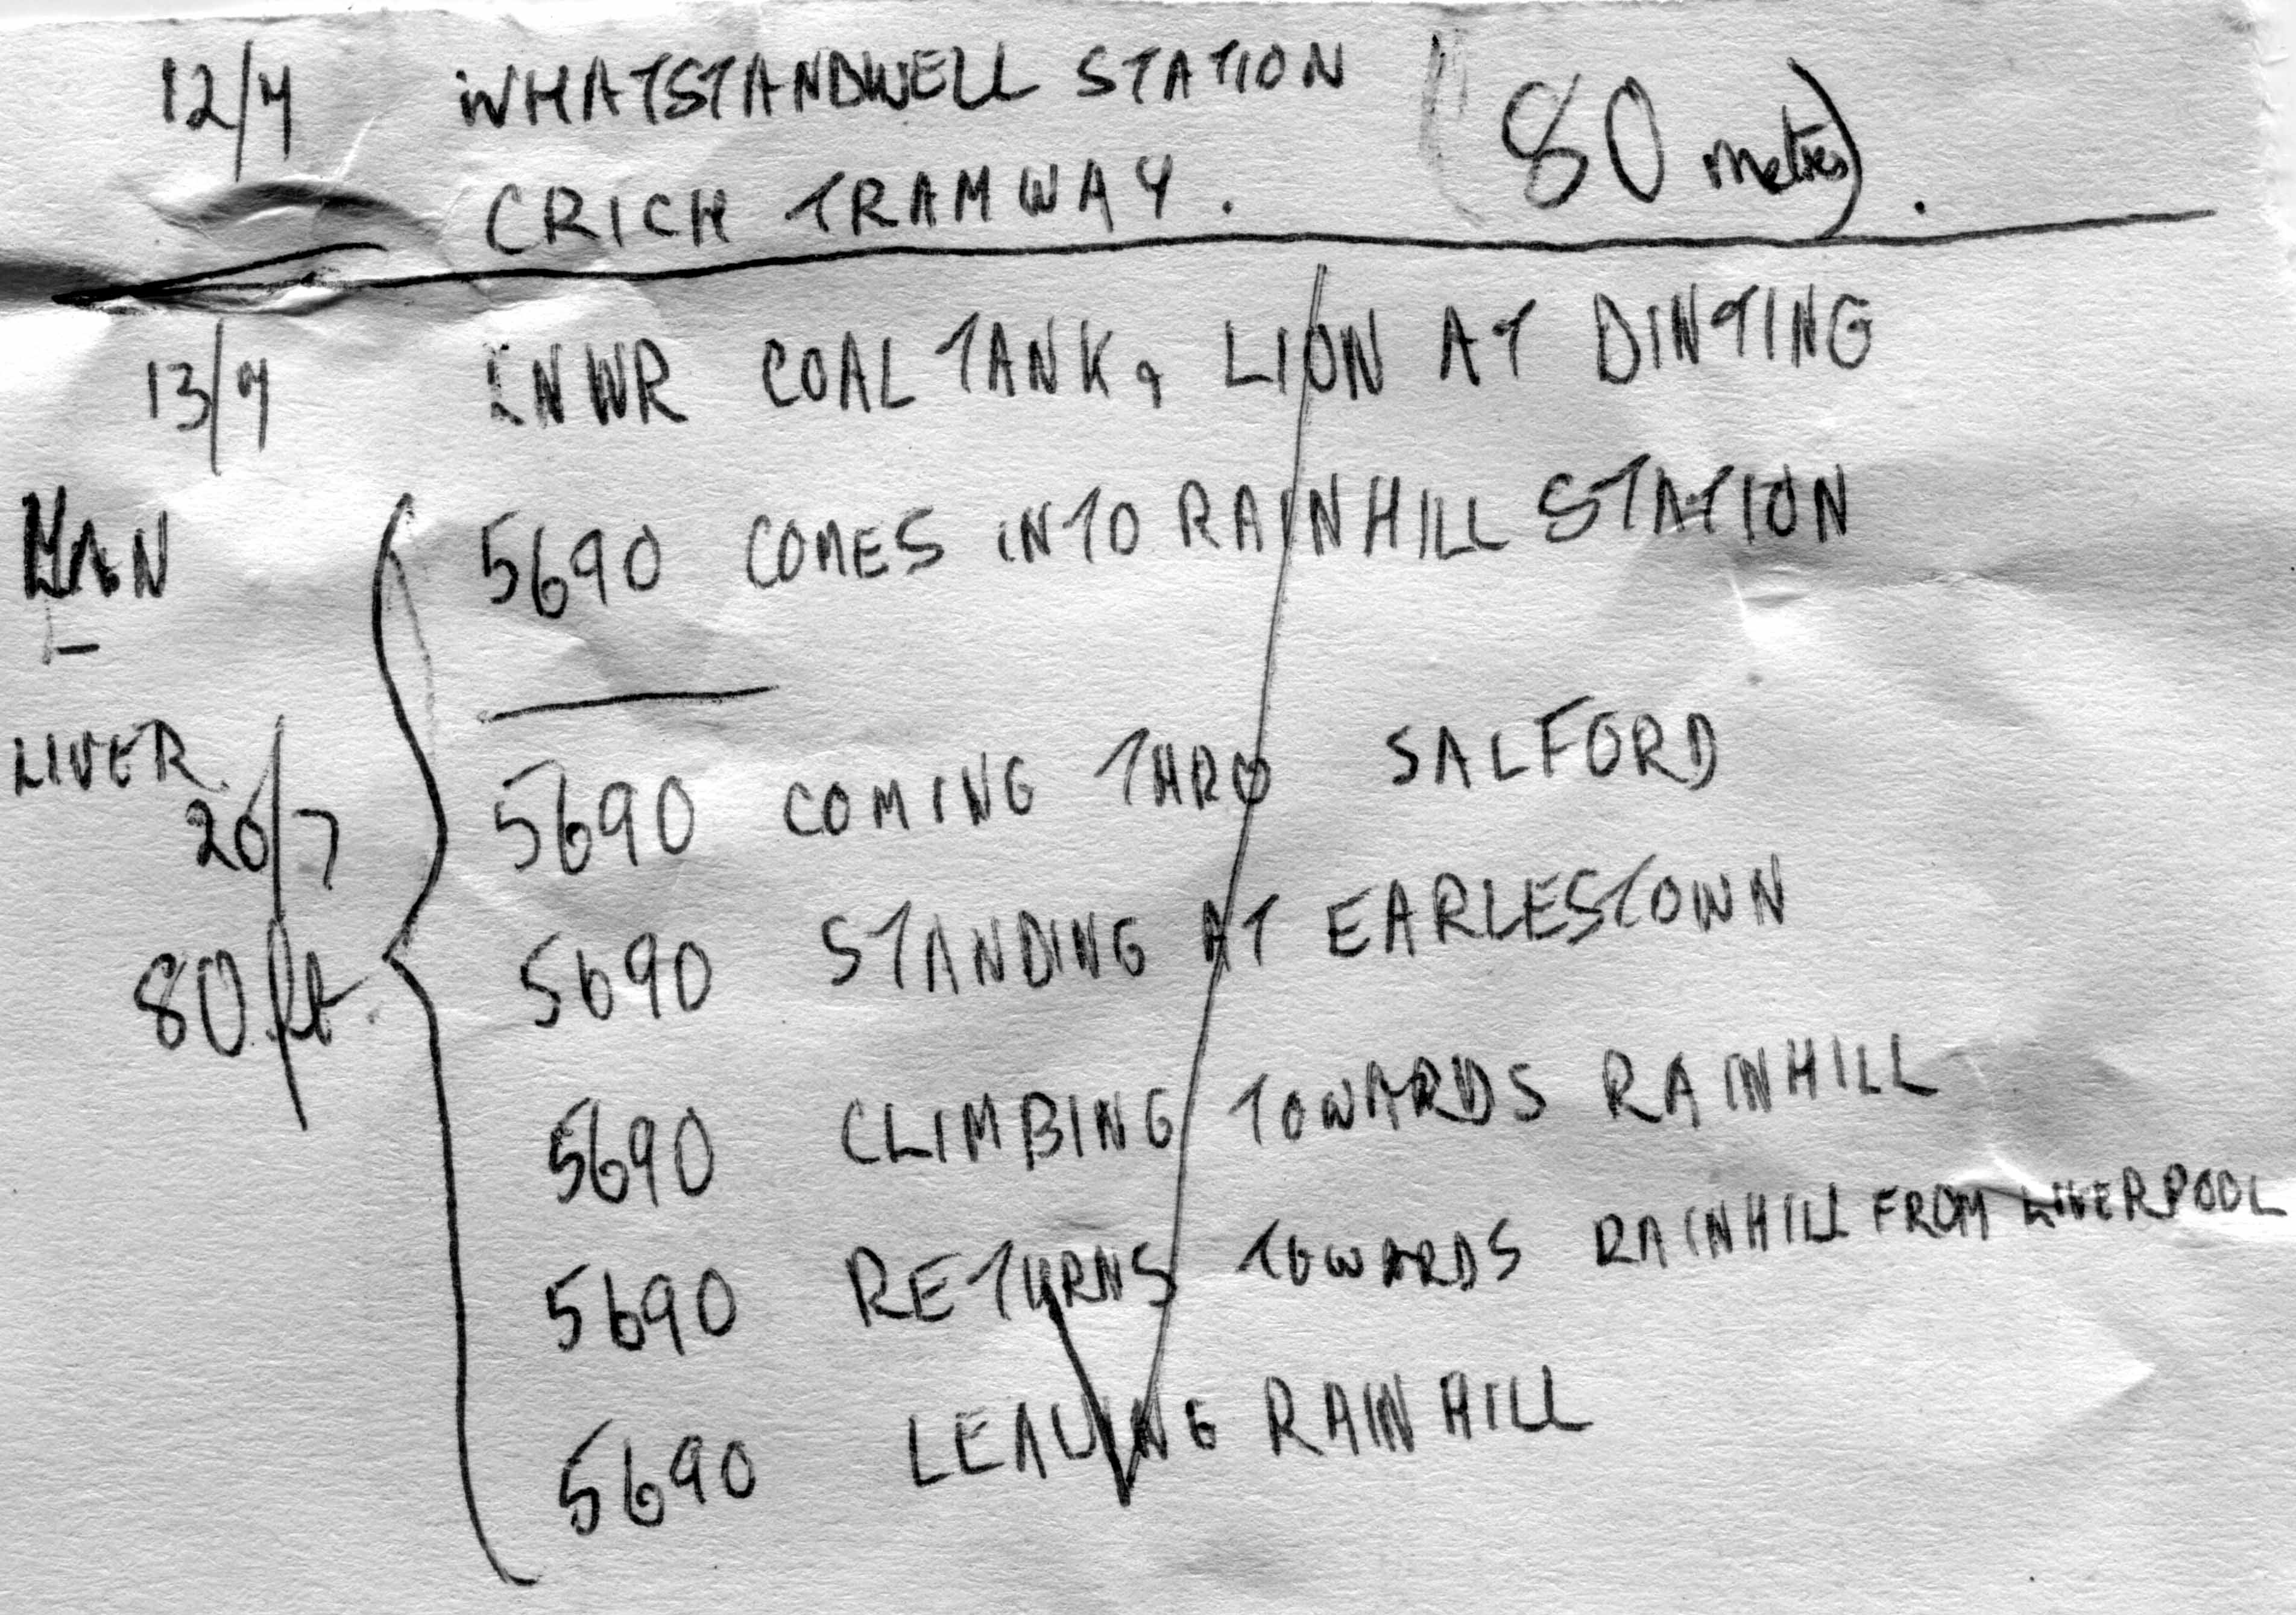 12/7 WHATSTANDWELL STATION (80 metres).
CRICH TRAMWAY.
13/7 LNWR COAL TANK, LION AT DINTING
MAN 5690 COMES INTO RAINHILL STATION
–
LIVER
20/7 5690 COMING THRO SALFORD
80 ft. 5690 STANDING AT EARLESTOWN
5690 CLIMBING TOWARDS RAINHILL
5690 RETURNS TOWARDS RAINHILL FROM LIVERPOOL
5690 LEAVING RAINHILL